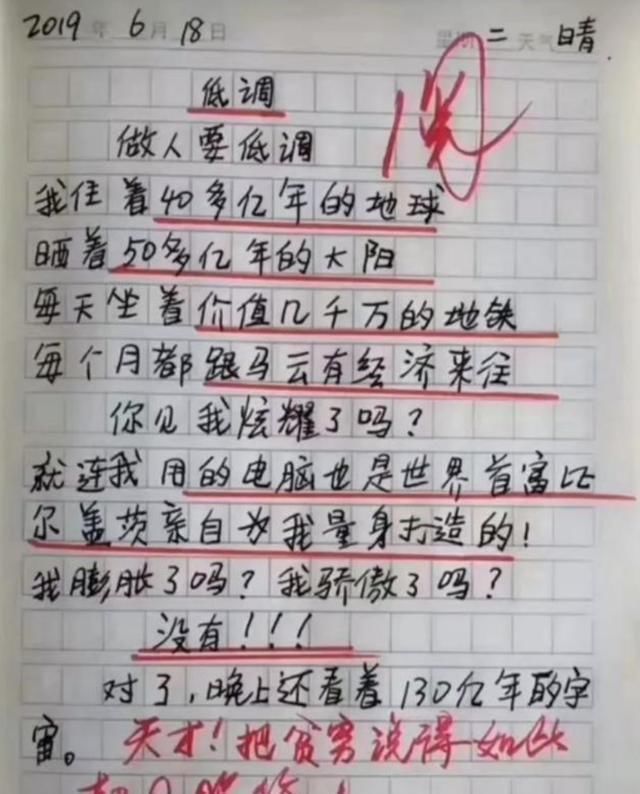 2019年 6月 18日 星期二 天气 晴
阅
低调
做人要低调
我住着40多亿年的地球
晒着50多亿年的大阳
每天坐着价值几千万的地铁
每个月都跟马云有经济来往
你见我炫耀了吗？
就连我用的电脑也是世界首富比
尔盖茨亲自为我量身打造的！
我膨胀了吗？我骄傲了吗？
没有！！！
对了，晚上还看着130亿年的宇
宙。天才！把贫穷说得如此